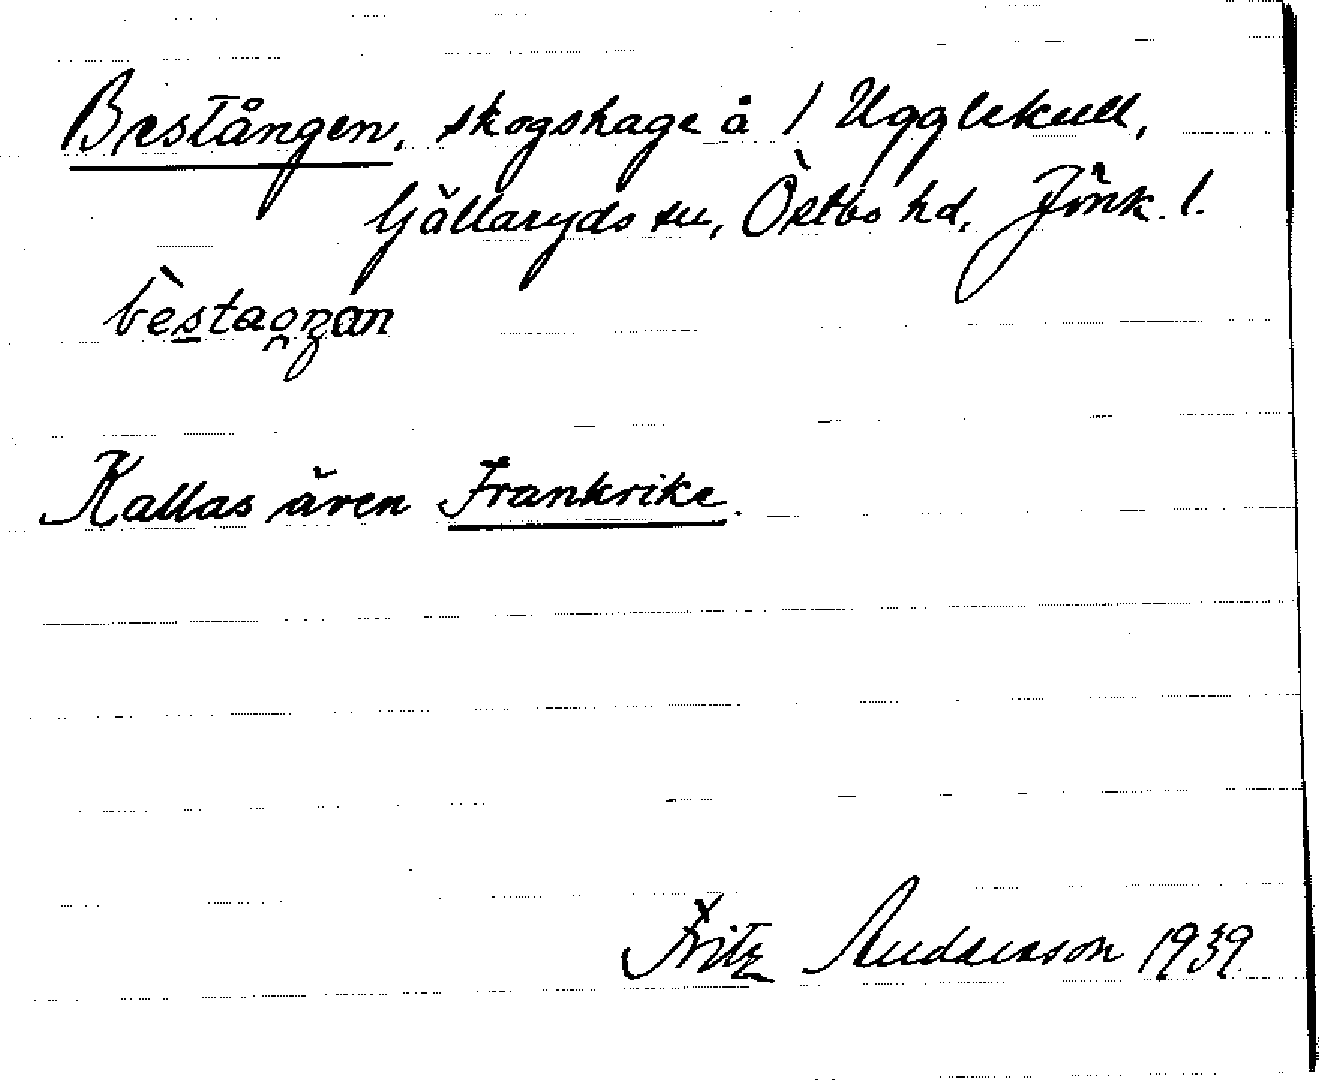 Bestången, skogshage å 1 Ugglekull,
Gällaryds sn, Östbo hd, Jönk. l.
Kallas även Frankrike.
Fritz Andersson 1939